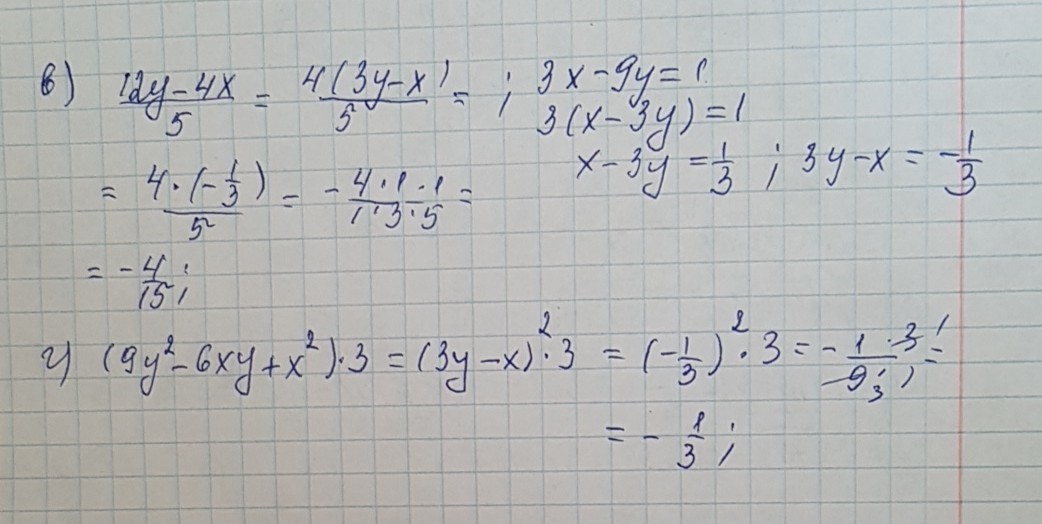 в) (12y-4x)/5 = 4(3y-x)/5 = ; 3x-9y=1
3(x-3y)=1
= 4·(-1/3)/5 = - 4·1·1/1·3·5 = x-3y=1/3 ; 3y-x=-1/3
= -4/15;
г) (9y²-6xy+x²)·3 = (3y-x)²·3 = (-1/3)²·3 = - 1·3 1/9 3·1 =
= - 1/3 ;